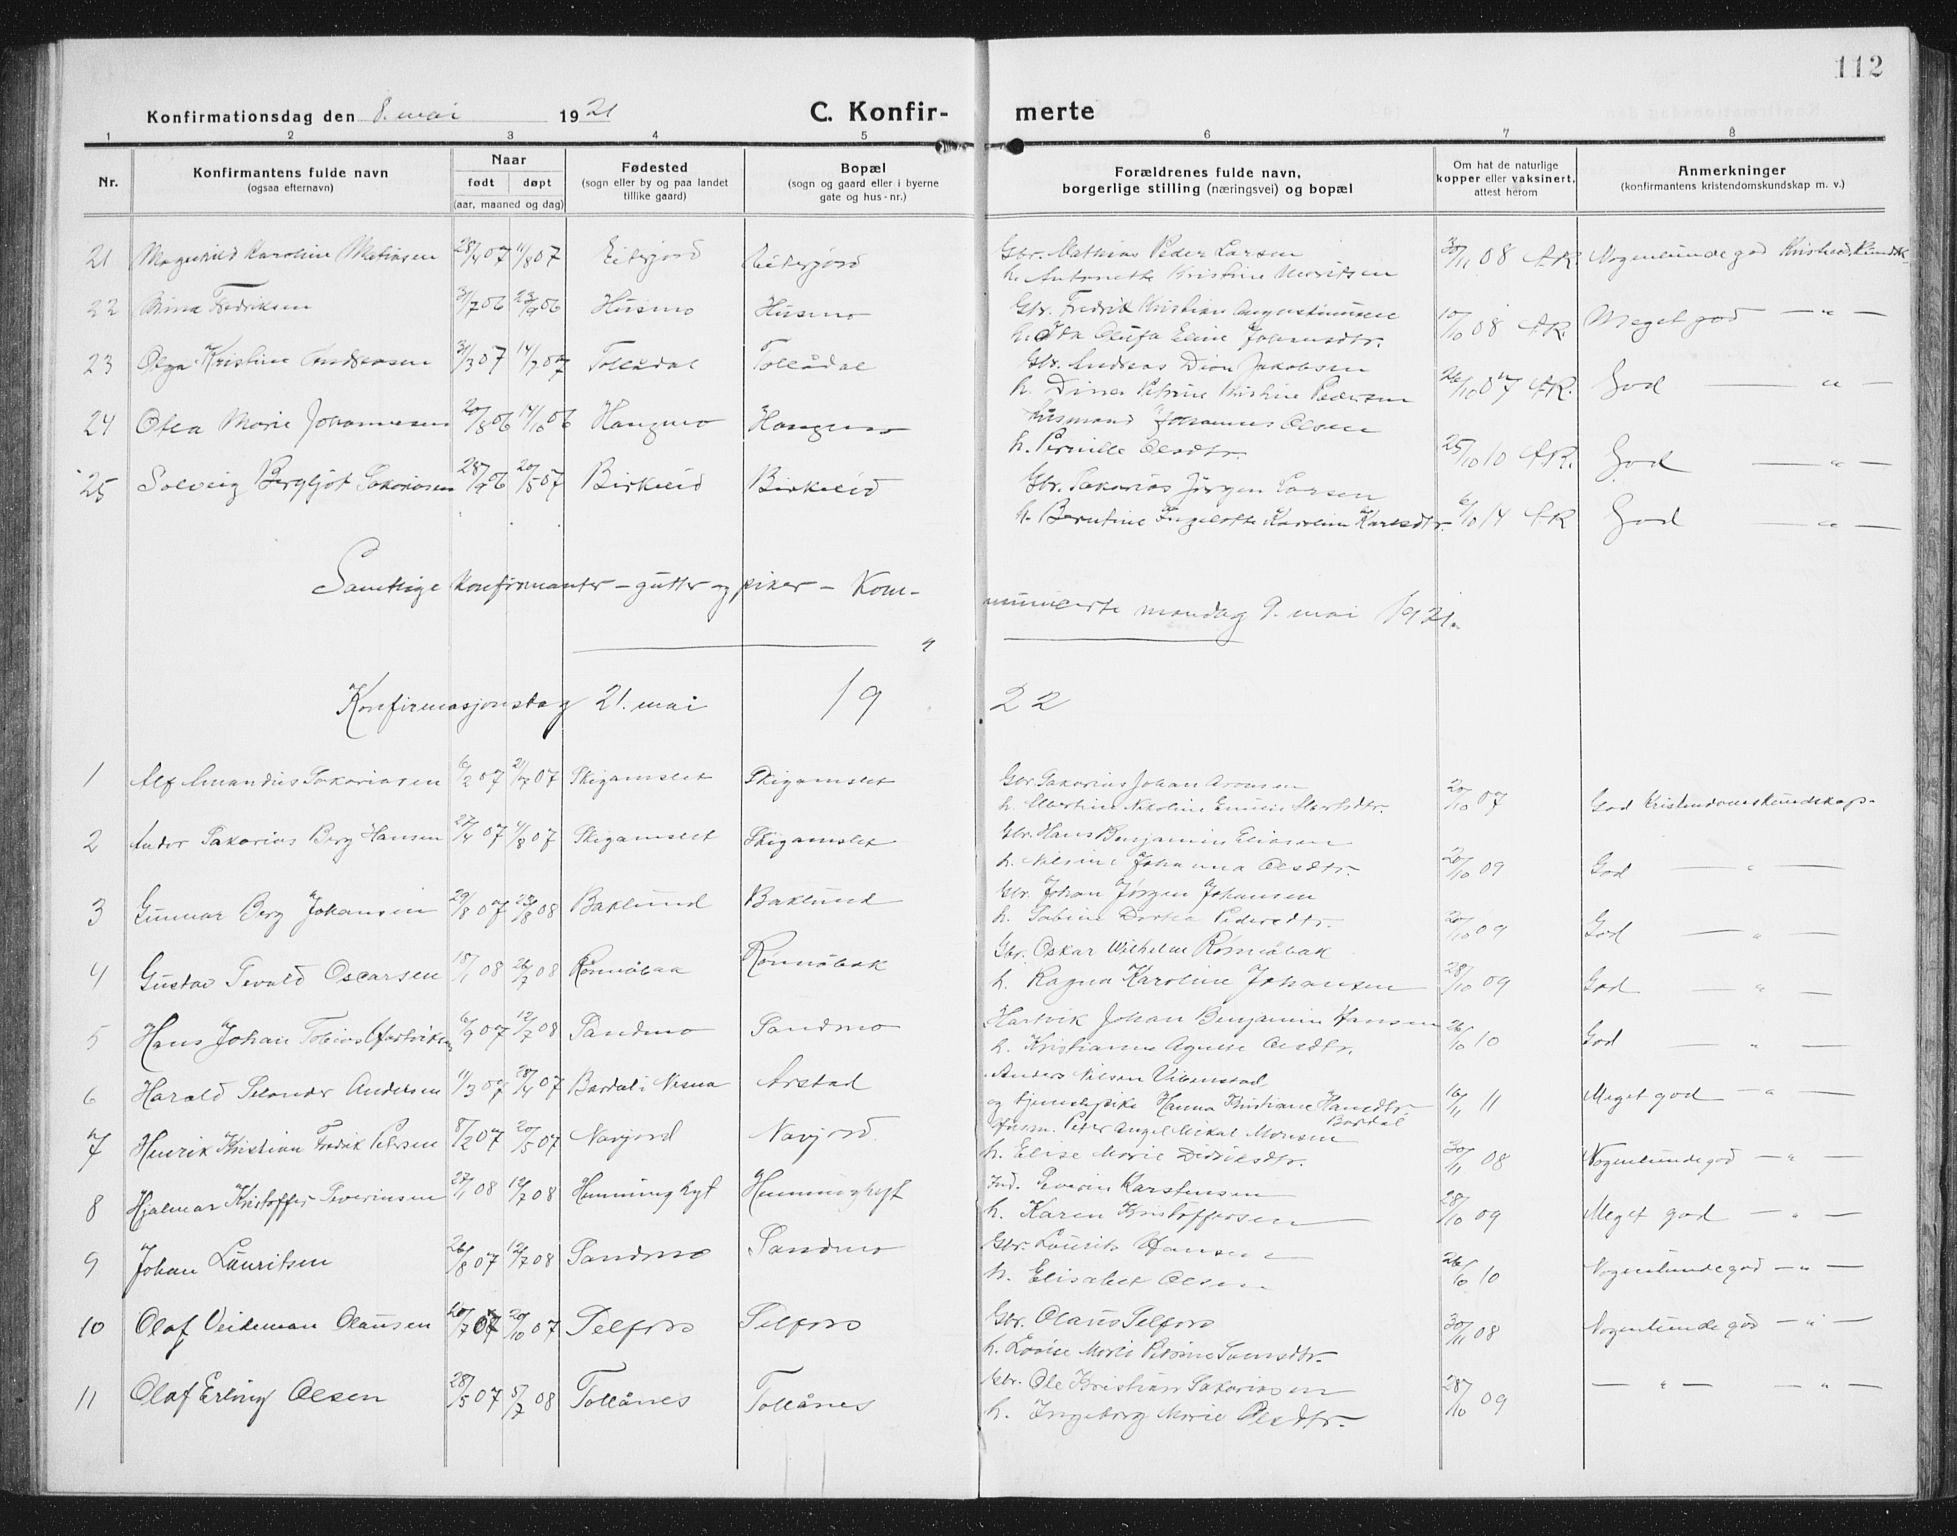 112
Konfirmationsdag den 8. mai 1921
C. Konfir-
merte
1 2 3 4 5 6 7 8
Nr.
Konfirmantens fulde navn
(ogsaa efternavn)
Naar
født døpt
(aar, maaned og dag)
Fødested
(sogn eller by og paa landet
tillike gaard)
Bopæl
(sogn og gaard eller i byerne
gate og hus-nr.)
Forældrenes fulde navn,
borgerlige stilling (næringsvei) og bopæl
Om hat de naturlige
kopper eller vaksinert,
attest herom
Anmerkninger
(konfirmantens kristendomskundskap m. v.)
21 Magnhild Karoline Matiasen 28/4 07 11/8 07 Eiterjord Eiterjord Gbr. Mathias Peder Larsen 30/11 08 A.R. Nogenlunde god Kristend.kundsk.
h. Antonette Kristine Meritsen
22 Fredriksen 3/7 06 23/9 06 Husmo Husmo Gbr. Fredrik Kristian Augustinussen 10/10 08 A.R. Meget god — " —
h. Ida Olufa Eline Johansdtr.
23 Olga Kristine Andreasen 3/3 07 14/7 07 Tollådal Tollådal Gbr. Andreas Dion Jakobsen 26/10 07 A.R. God — " —
h. Dina Petrine Kristine Pedersen
24 Olea Marie Johannesen 20/8 06 14/10 06 Haugmo Haugmo Husmand Johannes Olsen 25/10 10 A.R. God — " —
h. Pernille Olsdtr.
25 Solveig Bergljot Sakariasen 28/9 06 20/5 07 Birkeeid Birkeeid Gbr. Sakarias Jørgen Larsen 6/10 14 A.R God — " —
h. Berntine Ingelotte Karoline Karlsdtr.
Samtlige konfirmanter – gutter og piker – kom-
municerte mandag 9. mai 1921.
Konfirmasjonsdag 21. mai 19 22
1 Alf Amandus Sakariasen 6/2 07 21/7 07 Skigamslet Skigamslet Gbr. Sakarias Johan Aronsen 20/10 07 God Kristendomskundskap.
h. Albertine Nikoline Emilie
2 Andor Sakarias Berg Hansen 27/4 07 4/8 07 Skigamslet Skigamslet Gbr. Hans Benjamin Eliasen 20/10 09 God — " —
h. Nilsine Johanna Olsdtr.
3 Gunnar Berg Johansen 29/8 07 23/8 08 Baklund Baklund Gbr. Johan Jørgen Johansen 20/10 09 God — " —
h. Sabine Dortea Pedersdtr.
4 Gustav Sevald Oscarsen 18/1 08 26/7 08 Rønnåbak Gbr. Oskar Wilhelm Rønnåbak 28/10 09 God — " —
h. Ragna Karoline Johansen
5 Hans Johan Tobias Hartviksen 6/9 07 12/7 08 Sandmo Sandmo Hartvik Johan Benjamin Hansen 26/10 10 God — " —
h. Kristianna Agnete Olsdtr.
6 Harald Selander Andersen 11/3 07 28/4 07 Bardal i Nesna Arstad Anders Nilsen 16/11 11 Meget god — " —
og tjenestepike Hanna Kristiane Hansdtr. Bardal
7 Henrik Kristian Fredrik Petersen 8/2 07 20/5 07 Navjord Navjord Husm. Peter Angel Mikal Monsen 30/11 08 Nogenlunde god — " —
h. Elise Marie Didriksdtr.
8 Hjalmar Kristoffer Severinsen 27/1 08 12/7 08 Hemminghyt Hemminghyt Ind. Severin Karstensen 28/10 09 Meget god — " —
h. Karen Kristoffersen
9 Johan Lauritsen 26/8 07 12/7 08 Sandmo Sandmo Gbr. Laurits Hansen 26/10 10 Nogenlunde god — " —
h. Elisabet Olsen
10 Olaf Veideman Olausen 20/7 07 20/10 07 Selfors Selfors Gbr. Olaus Selfors 30/11 08 Nogenlunde god — " —
h. Lovise Marie Petrine
11 Olaf Erling Olsen 28/5 07 5/7 08 Tollånes Tollånes Gbr. Ole Kristian Sakariasen 28/10 09 — " — — " —
h. Ingeborg Marie Olsdtr.